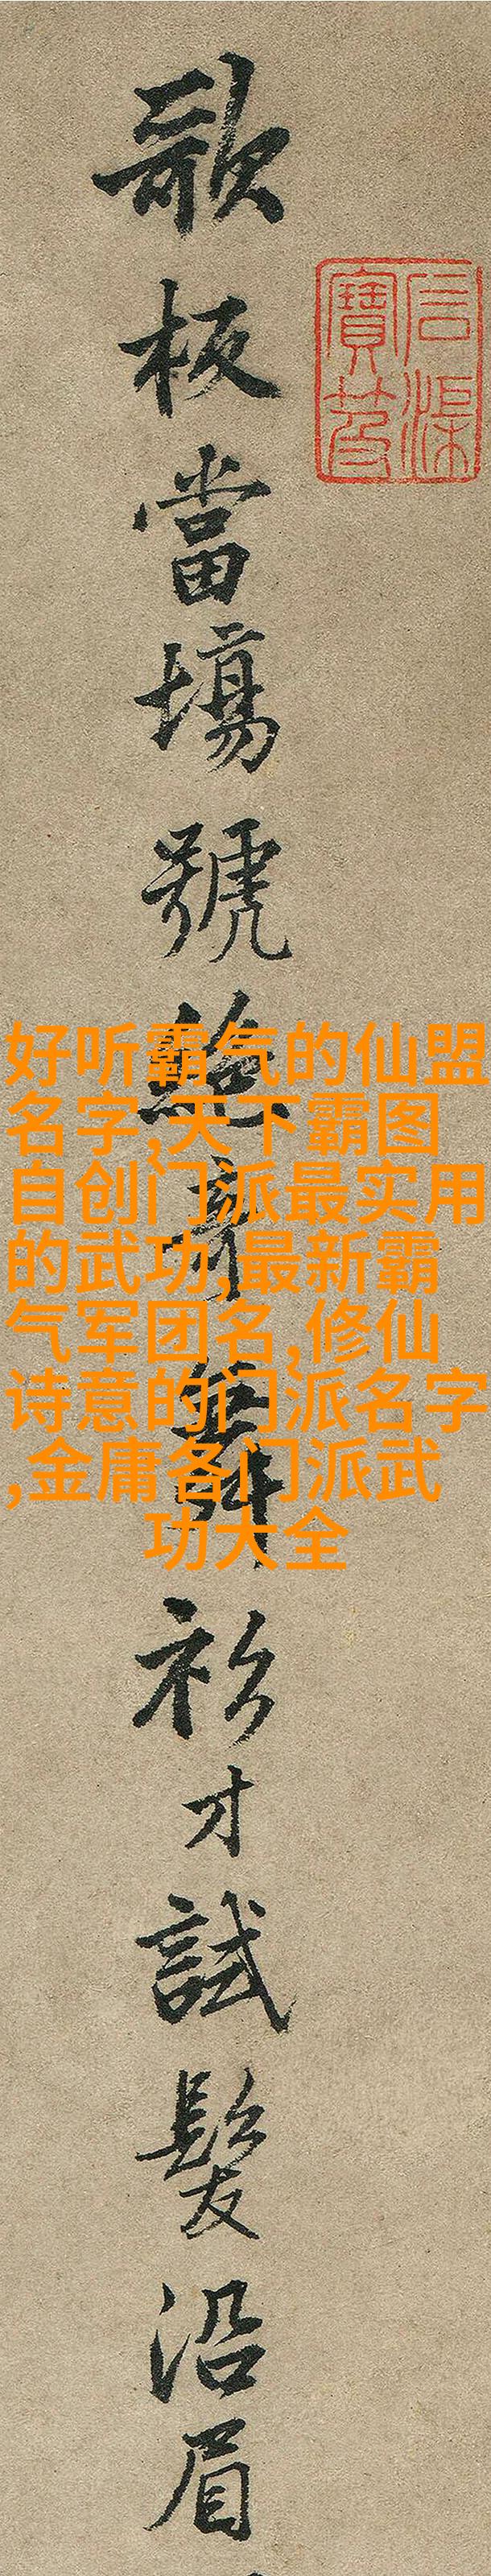 歌板當塲號絶奇舞衫才試髮沿眉
石渠寶笈
好听霸气的仙盟
名字,天下霸图
自创门派最实用
的武功,最新霸
气军团名,修仙
诗意的门派名字
,金庸各门派武
功大全